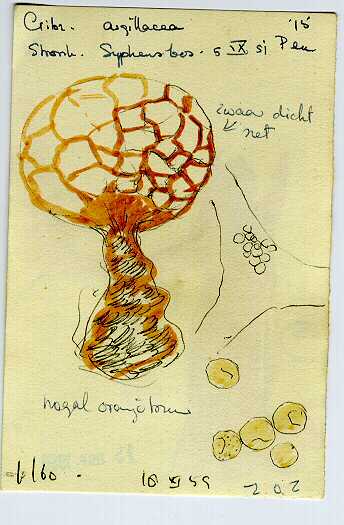 Cribr. argillacea '15
Stronk. Syphensbos. 5 IX 51 Peu
zwaar dicht
net
nogal oranjebruin
1/160.
10 XI 59